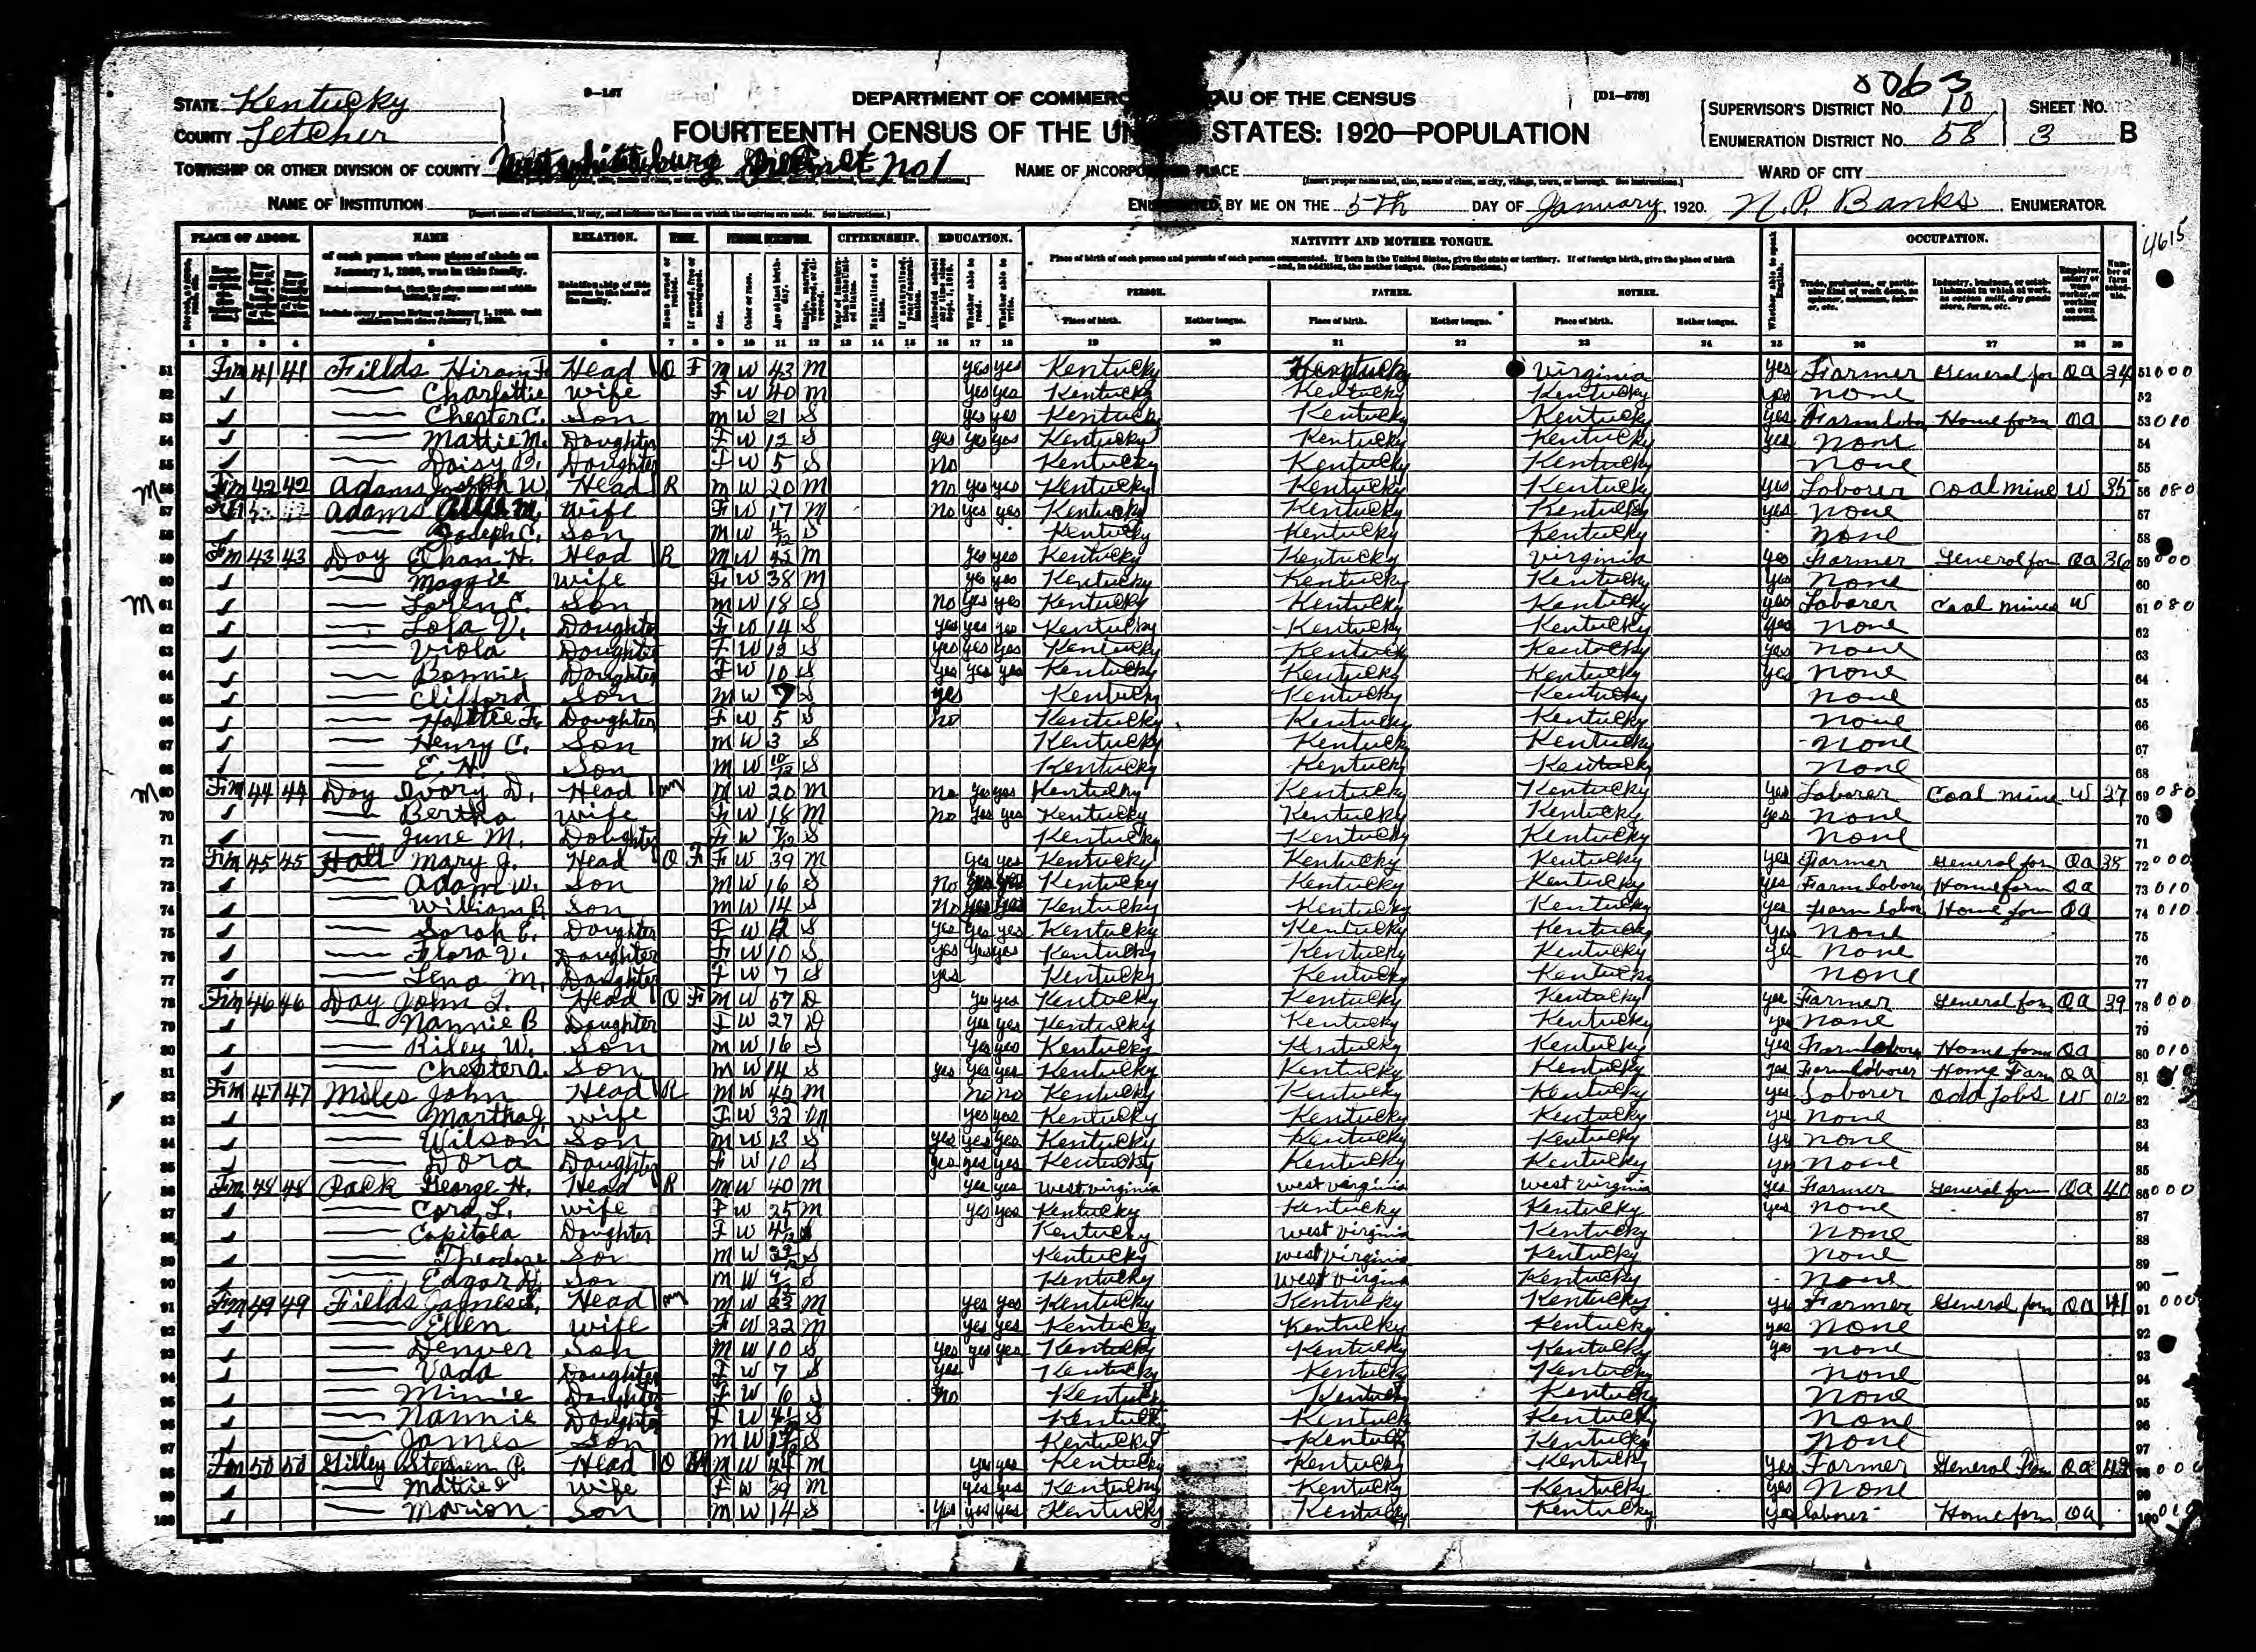 0063
STATE Kentucky
COUNTY Letcher
9-137
DEPARTMENT OF COMMERC AU OF THE CENSUS
[D1-578]
FOURTEENTH CENSUS OF THE UN STATES: 1920—POPULATION
SUPERVISOR'S DISTRICT No. 10 SHEET No.
ENUMERATION DISTRICT No. 58 3 B
TOWNSHIP OR OTHER DIVISION OF COUNTY Precinct No 1
NAME OF INCORPO PLACE
WARD OF CITY
NAME OF INSTITUTION
BY ME ON THE 5th DAY OF January, 1920. N.P. Banks, ENUMERATOR
4615
PLACE OF ABODE. NAME RELATION. CITIZENSHIP. EDUCATION. NATIVITY AND MOTHER TONGUE. OCCUPATION.
of each person whose place of abode on January 1, 1920, was in this family.
Place of birth of each person and parents of each person enumerated. If born in the United States, give the state or territory. If of foreign birth, give the place of birth and, in addition, the mother tongue. (See Instructions.)
PERSON. FATHER. MOTHER.
Place of birth. Mother tongue. Place of birth. Mother tongue. Place of birth. Mother tongue.
1 2 3 4 5 6 7 8 9 10 11 12 13 14 15 16 17 18 19 20 21 22 23 24 25 26 27 28 29
51 Fm 41 41 Fields Hiram F Head O F M W 43 M yes yes Kentucky Kentucky Virginia yes Farmer General farm OA 34 51 000
52 Charlottie wife F W 40 M yes yes Kentucky Kentucky Kentucky yes none 52
53 Chester C. Son M W 21 S yes yes Kentucky Kentucky Kentucky yes Farm labor Home farm OA 53 010
54 Mattie M. Daughter F W 12 S yes yes yes Kentucky Kentucky Kentucky yes none 54
55 Daisy B. Daughter F W 5 S no Kentucky Kentucky Kentucky none 55
M 56 Fm 42 42 Adams Joseph W. Head R M W 20 M no yes yes Kentucky Kentucky Kentucky yes Laborer Coal mine W 35 56 080
57 Adams M. wife F W 17 M no yes yes Kentucky Kentucky Kentucky yes none 57
58 Joseph C. Son M W 4/12 S Kentucky Kentucky Kentucky none 58
59 Fm 43 43 Day Ethan H. Head R M W 42 M yes yes Kentucky Kentucky Virginia yes Farmer General farm OA 36 59 000
60 Maggie wife F W 38 M yes yes Kentucky Kentucky Kentucky yes none 60
M 61 Loren C. Son M W 18 S no yes yes Kentucky Kentucky Kentucky yes Laborer Coal mines W 61 080
62 Lola V. Daughter F W 14 S yes yes yes Kentucky Kentucky Kentucky yes none 62
63 Viola Daughter F W 12 S yes yes yes Kentucky Kentucky Kentucky yes none 63
64 Bonnie Daughter F W 10 S yes yes yes Kentucky Kentucky Kentucky yes none 64
65 Clifford Son M W 7 S yes Kentucky Kentucky Kentucky none 65
66 Hattie F. Daughter F W 5 S no Kentucky Kentucky Kentucky none 66
67 Henry C. Son M W 3 S Kentucky Kentucky Kentucky none 67
68 E. H. Son M W 10/12 S Kentucky Kentucky Kentucky none 68
M 69 Fm 44 44 Day Ivory D. Head M W 20 M no yes yes Kentucky Kentucky Kentucky yes Laborer Coal mine W 37 69 080
70 Bertha wife F W 18 M no yes yes Kentucky Kentucky Kentucky yes none 70
71 June M. Daughter F W 7/12 S Kentucky Kentucky Kentucky none 71
72 Fm 45 45 Hall Mary J. Head O F F W 39 M yes yes Kentucky Kentucky Kentucky yes Farmer General farm OA 38 72 000
73 Adam W. Son M W 16 S no yes yes Kentucky Kentucky Kentucky yes Farm labor Home farm OA 73 010
74 William B. Son M W 14 S no yes yes Kentucky Kentucky Kentucky yes Farm labor Home farm OA 74 010
75 Sarah E. Daughter F W 12 S yes yes yes Kentucky Kentucky Kentucky yes none 75
76 Flora V. Daughter F W 10 S yes yes yes Kentucky Kentucky Kentucky yes none 76
77 Lena M. Daughter F W 7 S yes Kentucky Kentucky Kentucky none 77
78 Fm 46 46 Day John L. Head O F M W 57 D yes yes Kentucky Kentucky Kentucky yes Farmer General farm OA 39 78 000
79 Nannie B Daughter F W 27 D yes yes Kentucky Kentucky Kentucky yes none 79
80 Riley W. Son M W 16 S yes yes Kentucky Kentucky Kentucky yes Farm labor Home farm OA 80 010
81 Chester A. Son M W 14 S yes yes yes Kentucky Kentucky Kentucky yes Farm laborer Home Farm OA 81
82 Fm 47 47 Miles John Head R M W 42 M no no Kentucky Kentucky Kentucky yes Laborer Odd Jobs W 012 82
83 Martha J. wife F W 32 M yes yes Kentucky Kentucky Kentucky yes none 83
84 Wilson Son M W 13 S yes yes yes Kentucky Kentucky Kentucky yes none 84
85 Dora Daughter F W 10 S yes yes yes Kentucky Kentucky Kentucky yes none 85
86 Fm 48 48 Pack George H. Head R M W 40 M yes yes West Virginia West Virginia West Virginia yes Farmer General farm OA 40 86 000
87 Cora L. wife F W 25 M yes yes Kentucky Kentucky Kentucky yes none 87
88 Capitola Daughter F W S Kentucky West Virginia Kentucky none 88
89 Theodore Son M W S Kentucky West Virginia Kentucky none 89
90 Edgar D. Son M W S Kentucky West Virginia Kentucky none 90
91 Fm 49 49 Fields James S. Head M W 33 M yes yes Kentucky Kentucky Kentucky yes Farmer General farm OA 41 91 000
92 Ellen wife F W 32 M yes yes Kentucky Kentucky Kentucky yes none 92
93 Denver Son M W 10 S yes yes yes Kentucky Kentucky Kentucky yes none 93
94 Vada Daughter F W 7 S yes Kentucky Kentucky Kentucky none 94
95 Minnie Daughter F W 6 S no Kentucky Kentucky Kentucky none 95
96 Nannie Daughter F W S Kentucky Kentucky Kentucky none 96
97 James Son M W S Kentucky Kentucky Kentucky none 97
98 Fm 50 50 Gilley Stephen P. Head O M W 44 M yes yes Kentucky Kentucky Kentucky yes Farmer General Farm OA 42 98 000
99 Mattie wife F W 39 M yes yes Kentucky Kentucky Kentucky yes none 99
100 Marion Son M W 14 S yes yes yes Kentucky Kentucky Kentucky yes laborer Home farm OA 100